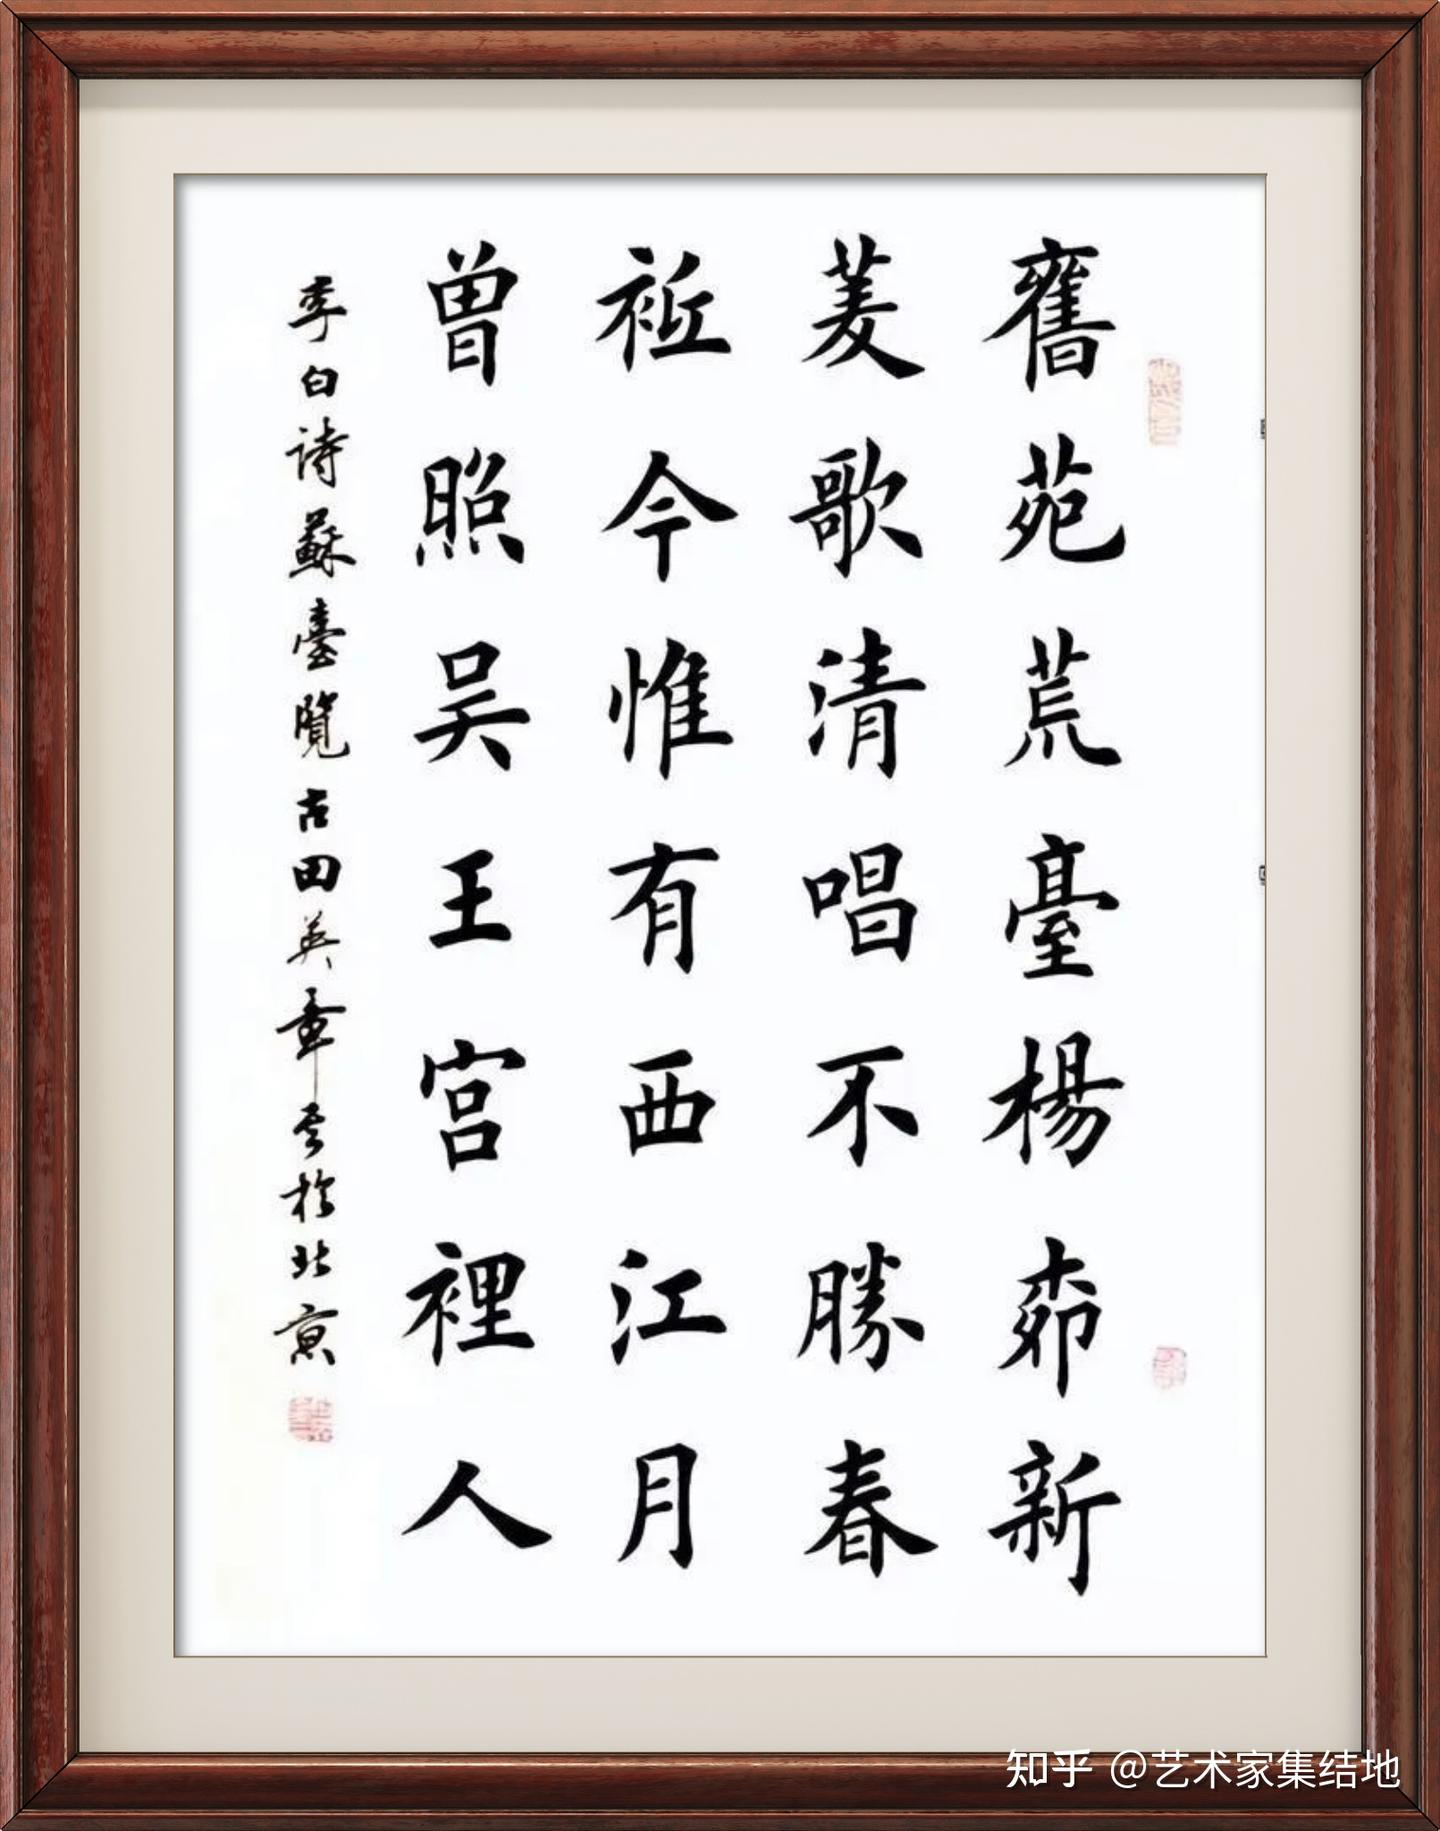 舊苑荒臺楊柳新
菱歌清唱不勝春
祗今惟有西江月
曾照吴王宫裡人
李白詩蘇臺覽古田英章書於北京
知乎 @艺术家集结地